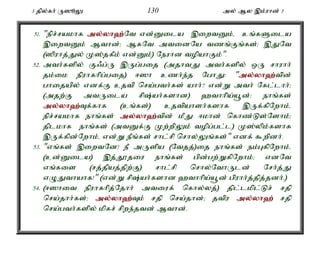 3 தில்கர் ருஸூலு 130 அல் ஆல இம்ரான் 3
51. "நிச்சயமாக அல்லாஹ்வே என்னுடைய இறைவனும், உங்களுடைய
இறைவனும் ஆவான்; ஆகவே அவனையே வணங்குங்கள்; இதுவே
(ஸிராத்துல் முஸ்தகீம் என்னும்) நேரான வழியாகும்."
52. அவர்களில் குஃப்ரு இருப்பதை (அதாவது அவர்களில் ஒரு சாரார்
தம்மை நிராகரிப்பதை) ஈஸா உணர்ந்த போது: "அல்லாஹ்வின்
பாதையில் எனக்கு உதவி செய்பவர்கள் யார்? என்று அவர் கேட்டார்;
(அதற்கு அவருடைய சிஷ்யர்களான) ஹவாரிய்யூன்: நாங்கள்
அல்லாஹ்வுக்காக (உங்கள்) உதவியாளர்களாக இருக்கிறோம்,
நிச்சயமாக நாங்கள் அல்லாஹ்வின் மீது ஈமான் கொண்டுள்ளோம்;
திடமாக நாங்கள் (அவனுக்கு முற்றிலும் வழிப்பட்ட) முஸ்லிம்களாக
இருக்கின்றோம், என்று நீங்கள் சாட்சி சொல்லுங்கள்" எனக் கூறினர்.
53. "எங்கள் இறைவனே! நீ அருளிய (வேதத்)தை நாங்கள் நம்புகிறோம்,
(உன்னுடைய) இத்தூதரை நாங்கள் பின்பற்றுகிறோம்; எனவே
எங்களை (சத்தியத்திற்கு) சாட்சி சொல்வோருடன் சேர்த்து
எழுதுவாயாக!" (என்று சிஷ்யர்களான ஹவாரிய்யூன் பிரார்த்தித்தனர்.)
54. (ஈஸாவை நிராகரித்தோர் அவரைக் கொல்லத்) திட்டமிட்டுச் சதி
செய்தார்கள்; அல்லாஹ்வும் சதி செய்தான்; தவிர அல்லாஹ் சதி
செய்பவர்களில் மிகச் சிறந்தவன் ஆவான்.